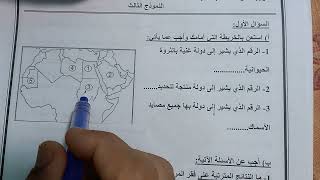 النموذج الثالث
السؤال الأول:
أ) استعن بالخريطة التي أمامك وأجب عما يأتي:
1- الرقم الذي يشير إلى دولة غنية بالثروة
الحيوانية...............
2- الرقم الذي يشير إلى دولة منتجة للحديد...
3- الرقم الذي يشير إلى دولة بها جميع مصايد
الأسماك...............
ب) أجب عن الأسئلة الآتية:
1- ما النتائج المترتبة على فقر
1
4
5
3